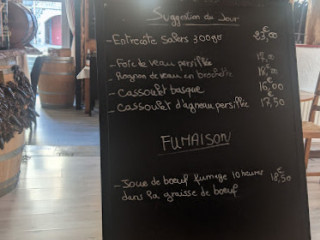 Suggestion du Jour
- Entrecôte Salers 300gr 23,00€
- Foie de veau persillée
- Rognon de veau en brochette
- Cassoulet basque 16,00
- Cassoulet d'agneau persillée 17,50
FUMAISON
- Joue de boeuf fumage 10 heures 18,50€
dans la graisse de boeuf